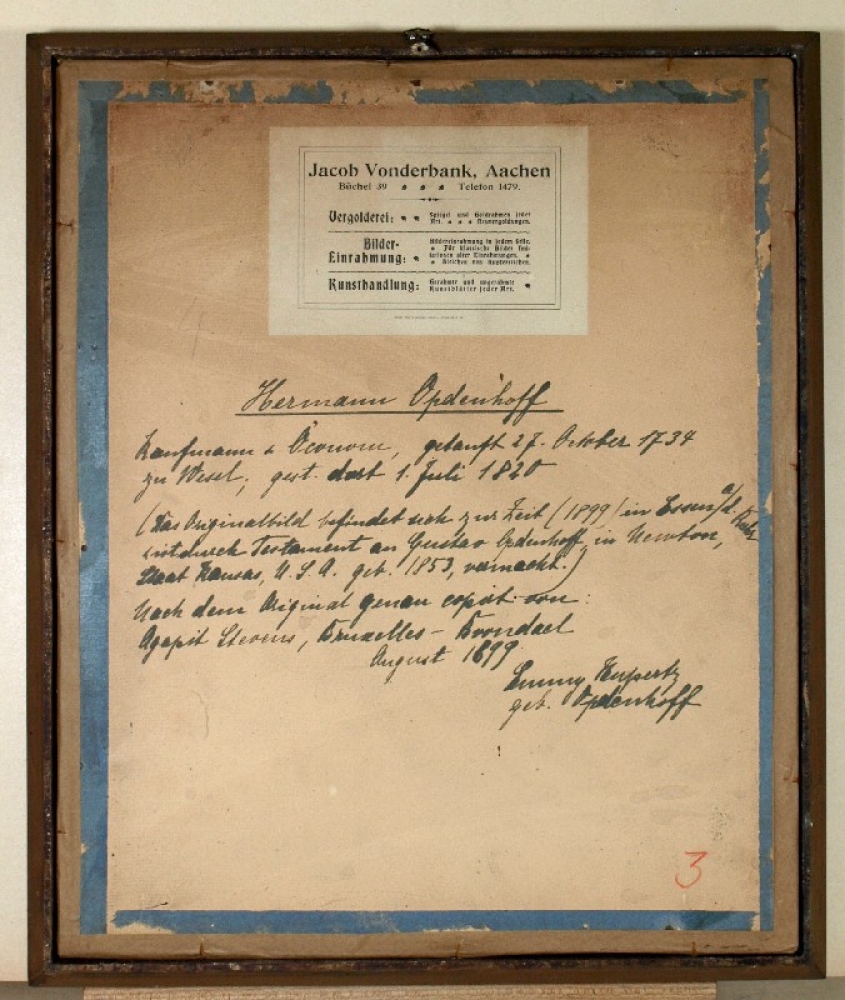 Jacob Vonderbank, Aachen
Büchel 39 Telefon 1479.
Vergolderei: Spiegel und Goldrahmen jeder
Art. Neuvergoldungen.
Bilder- Bildereinrahmung in jedem Stile.
Für klassische Bilder
Einrahmung: alter Einrahmungen.
Bleichen von Kupferstichen.
Kunsthandlung: Gerahmte und ungerahmte
Kunstblätter jeder Art.
Hermann Opdenhoff
Kaufmann & Öconom, getauft 27. October 1734
zu Wesel, gest. dort 1. Juli 1820
(Das Originalbild befindet sich zur Zeit (1899) in Essen a/d. Ruhr
ist durch Testament an Gustav Opdenhoff in Newton,
Staat Kansas, U.S.A. geb. 1853, vermacht.)
Nach dem Original genau copirt von:
Agapit Stevens, Bruxelles - Boondael
August 1899
Emmy Hupertz
geb. Opdenhoff
3